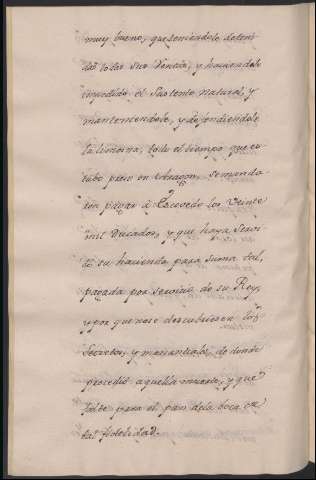 muy bueno, que teniendole deteni-
das todas sus Rentas, y haviendole
impedido el Sustento natural, y
manteniendole, y defendiendole
la limosna, todo el tiempo que es-
tubo preso en Aragon, se manda-
ron pagar à Escovedo los Veinte
mil Ducados, y que haya Servi-
do su hacienda para suma tal,
pagada por servicio de su Rey,
y por que no se descubriesen los
Secretos, y manantiales, de donde
procediò aquella muerte, y que
falte para el pan de la boca en
tal fidelidad.